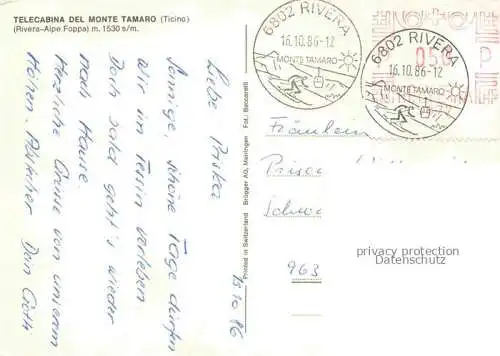 TELECABINA DEL MONTE TAMARO (Ticino)
(Rivera-Alpe Foppa) m. 1530 s/m.
15.10.86
Liebe Priska
Sonnige, schöne Tage dürfen
wir im Tessin verleben
Doch bald geht's wieder
nach Hause.
Herzliche Grüsse von unserem
Dein Götti
Printed in Switzerland Brügger AG, Meiringen Fot.: Beccarelli
6802 RIVERA
16.10.86-12
MONTE TAMARO
6802 RIVERA
16.10.86-12
MONTE TAMARO
P
Fräulein
963
privacy protection
Datenschutz